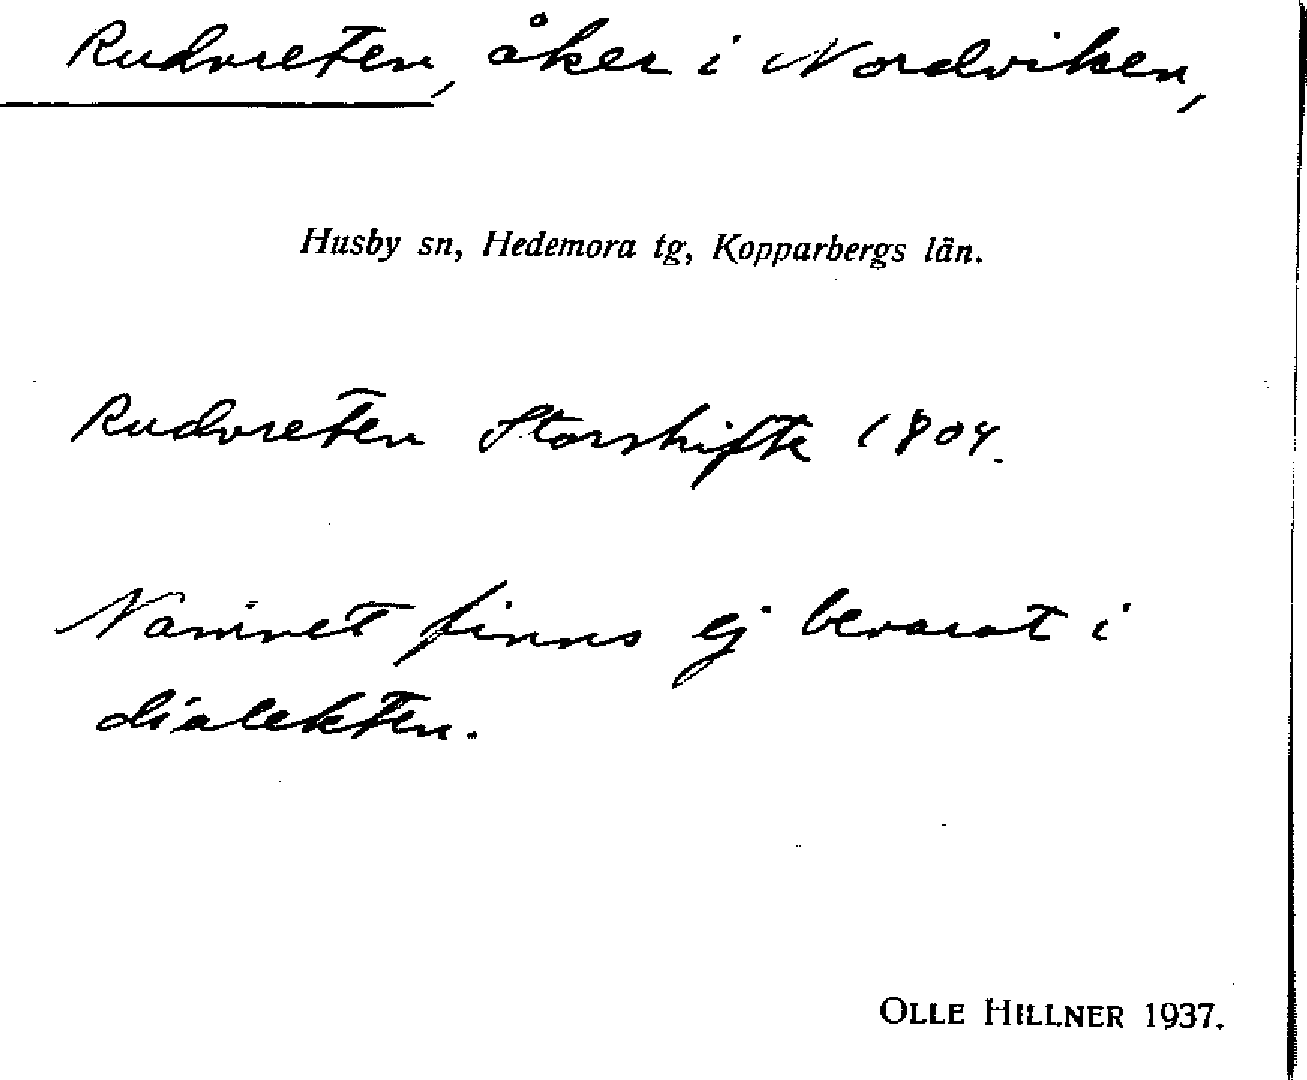 Rudvreten, åker i Nordviken,
Husby sn, Hedemora tg, Kopparbergs län.
Rudvreten Storskifte 1804.
Namnet finns ej bevarat i
dialekten.
OLLE HILLNER 1937.